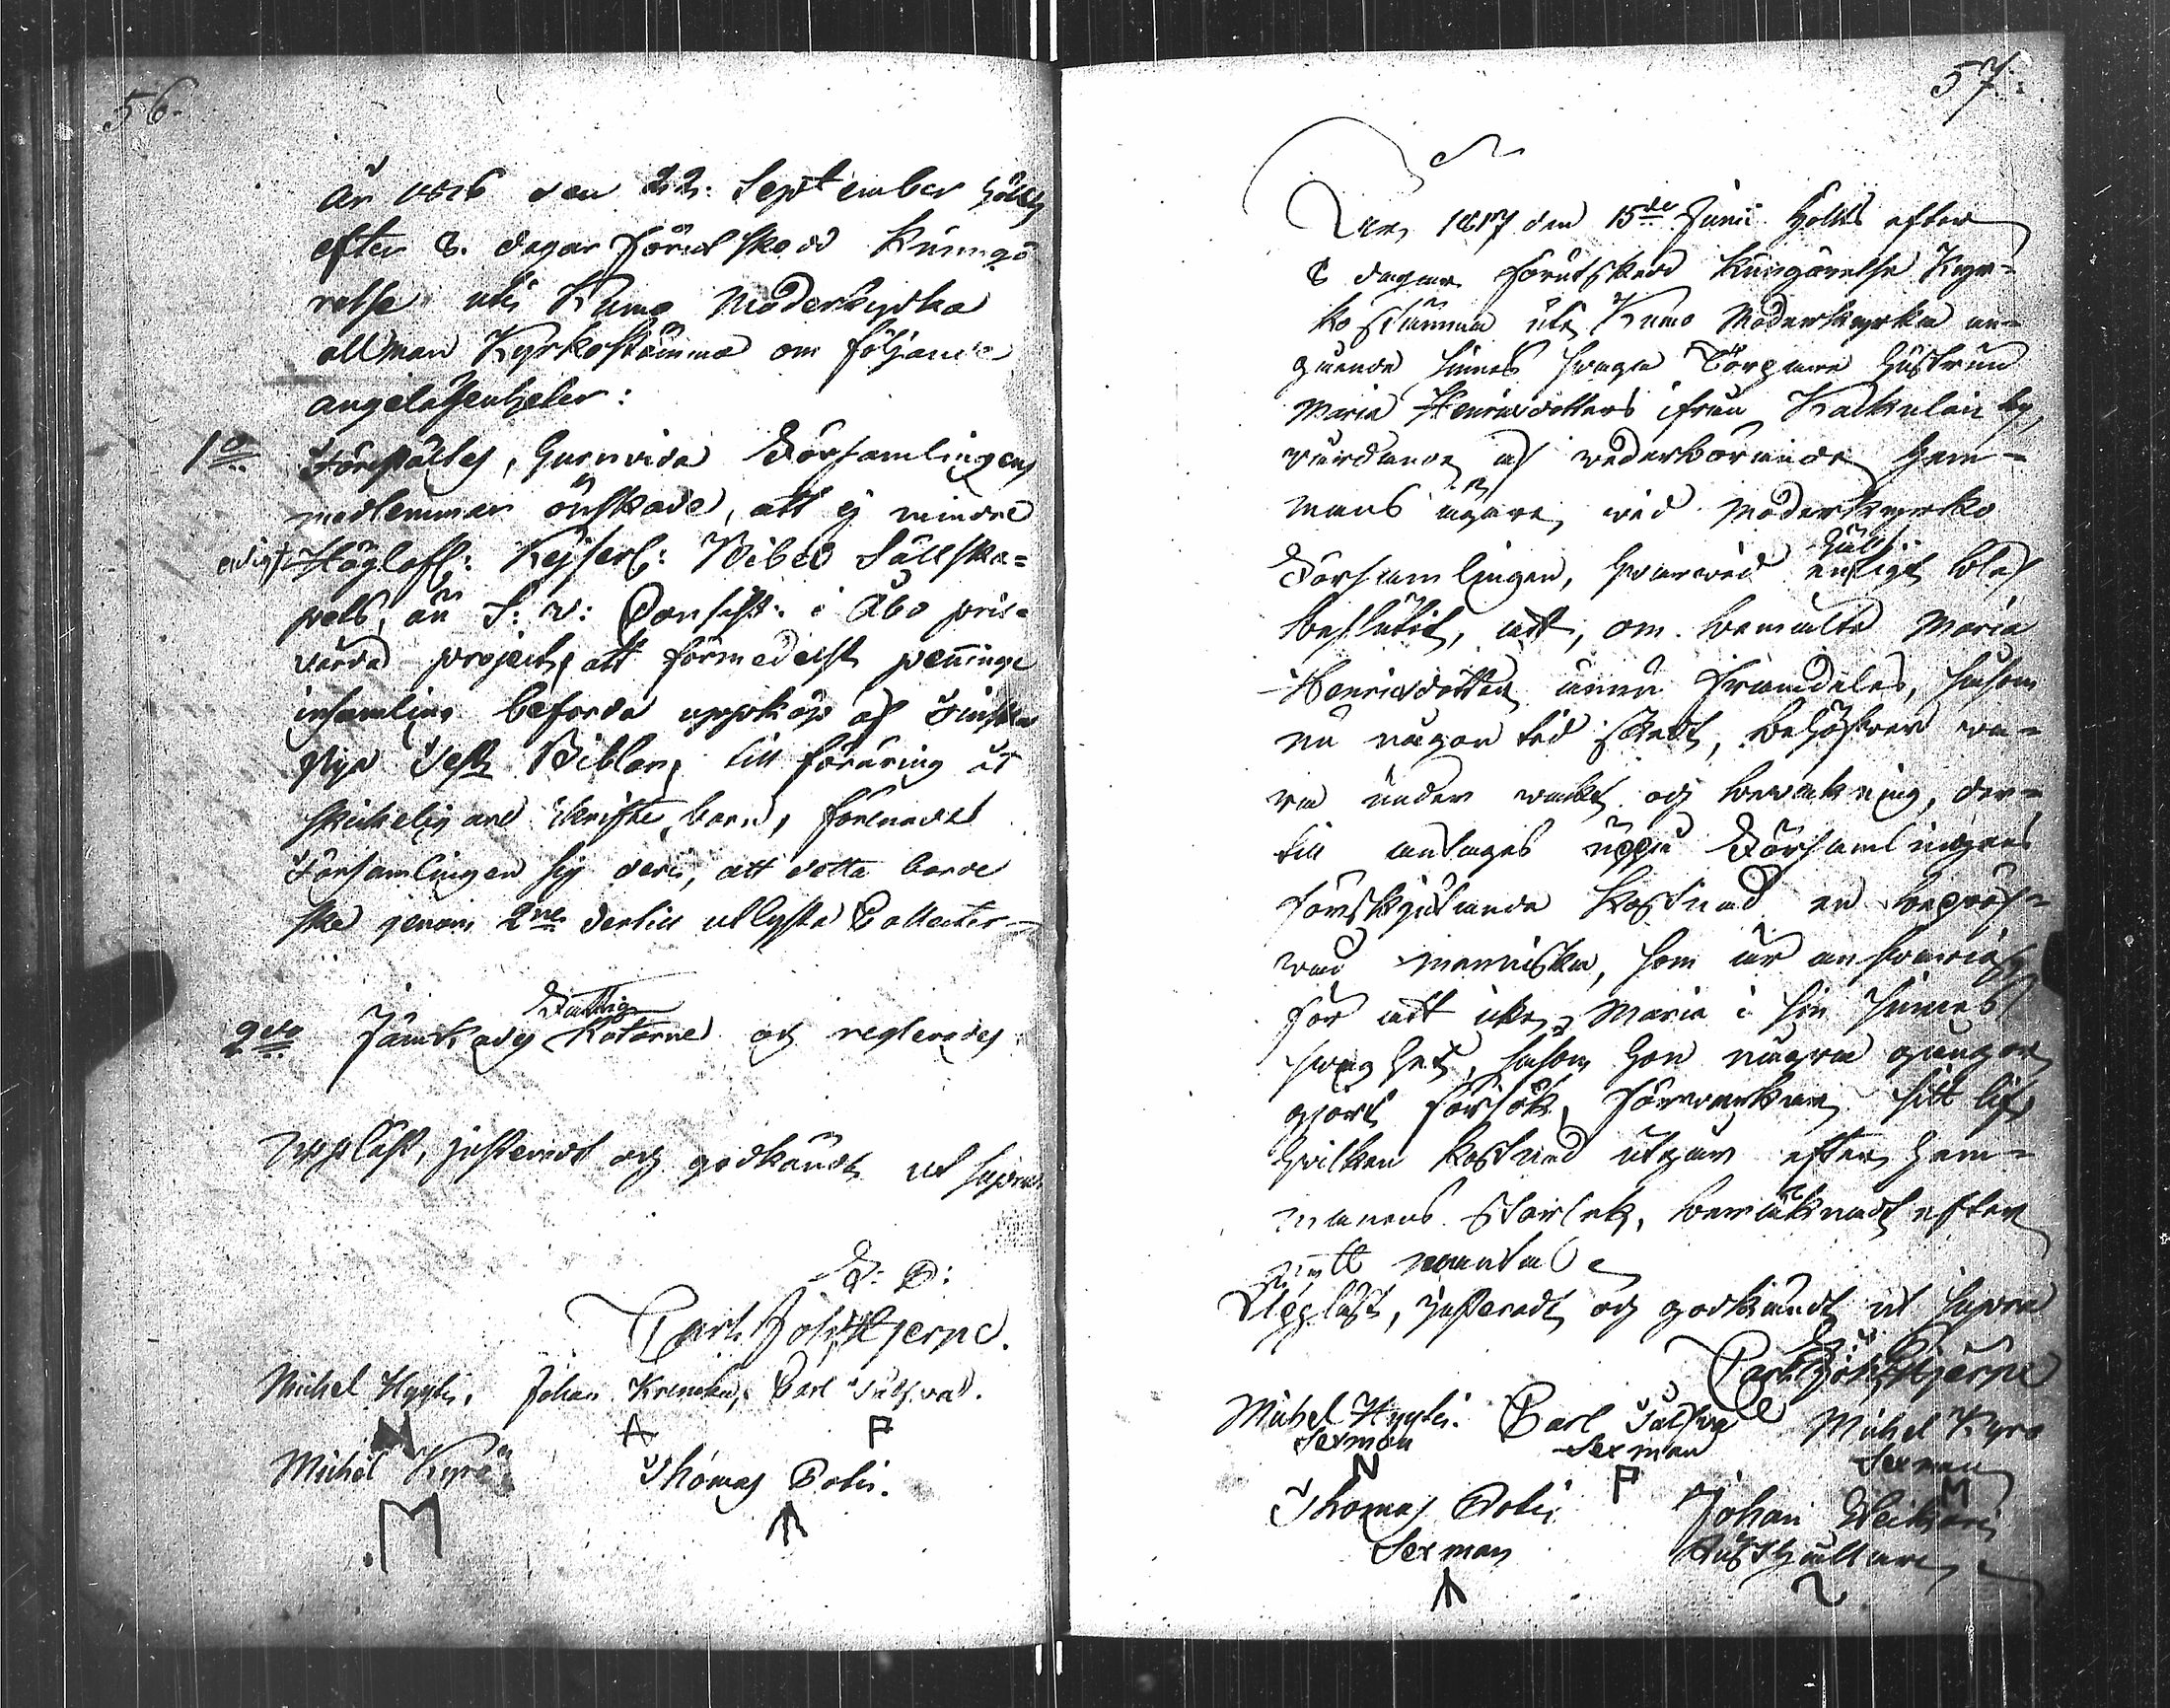 56.
År 1816 den 22. September hölls
efter 8. dagar förut skedd Kungö
relse uti Kumo Moderkyrka
allmän Kyrkostämma om följande
angelägenheter:
1o Föreställtes, huruvida Församlingens
medlemmar önskade, att ej mindre
enligt Höglofl: Kejserl: Bibel Sällska=
pets, än S: V: Consist: i Åbo pris=
värda project, att förmedelst penninge
insamling befordra uppköp af Finska
Nya Test Biblar, till föräring åt
skickelig are skrifte barn, förenade
Församlingen sig deri, att detta borde
ske genom 2ne dertill utlyste Collecter
2do Jämkades Fattig Rotarne och reglerades
Uppläst, justeradt och godkändt ut supra
Carl Joh: Hjerpe.
Michel Hyytis, Johan Krencku, Carl Tulkva.
N A P
Michel Kyrö Thomas Pohis.
M
57.
Åren 1817 den 15de Junii hölls efter
8 dagars förutskedd Kungörelse Kyr=
kostämma uti Kumo Moderkyrka an=
gående sinnes svaga Torpare hustrun
Maria Henricsdotters ifrån Kackulais by,
vårdande af vederbörande hem=
mans ägare wid Moderkyrko
Församlingen, hvarwid enligt blef
beslutit, att, om bemälte Maria
Henricsdotter ännu framdeles, såsom
nu någon tid skedt, behöfver va=
ra under vackt och bevakning, der=
till antages uppå Församlingens
förskjutande kostnad en bepröf=
vad menniska, som är ansvarig
för att icke Maria i sin sinnes
svaghet, såsom hon några gångor
gjort försök, förverkar sitt lif,
hvilken kostnad utgår efter hem=
manens storlek, beräknadt efter
nytt mantal
Uppläst, justeradt och godkändt ut supra
Carl Joh: Hjerpe
Michel Hyytis. Carl Tulkva Michel Kyrö
Sexman Sexman Sexman
N P M
Thomas Pohis Johan
Sexman